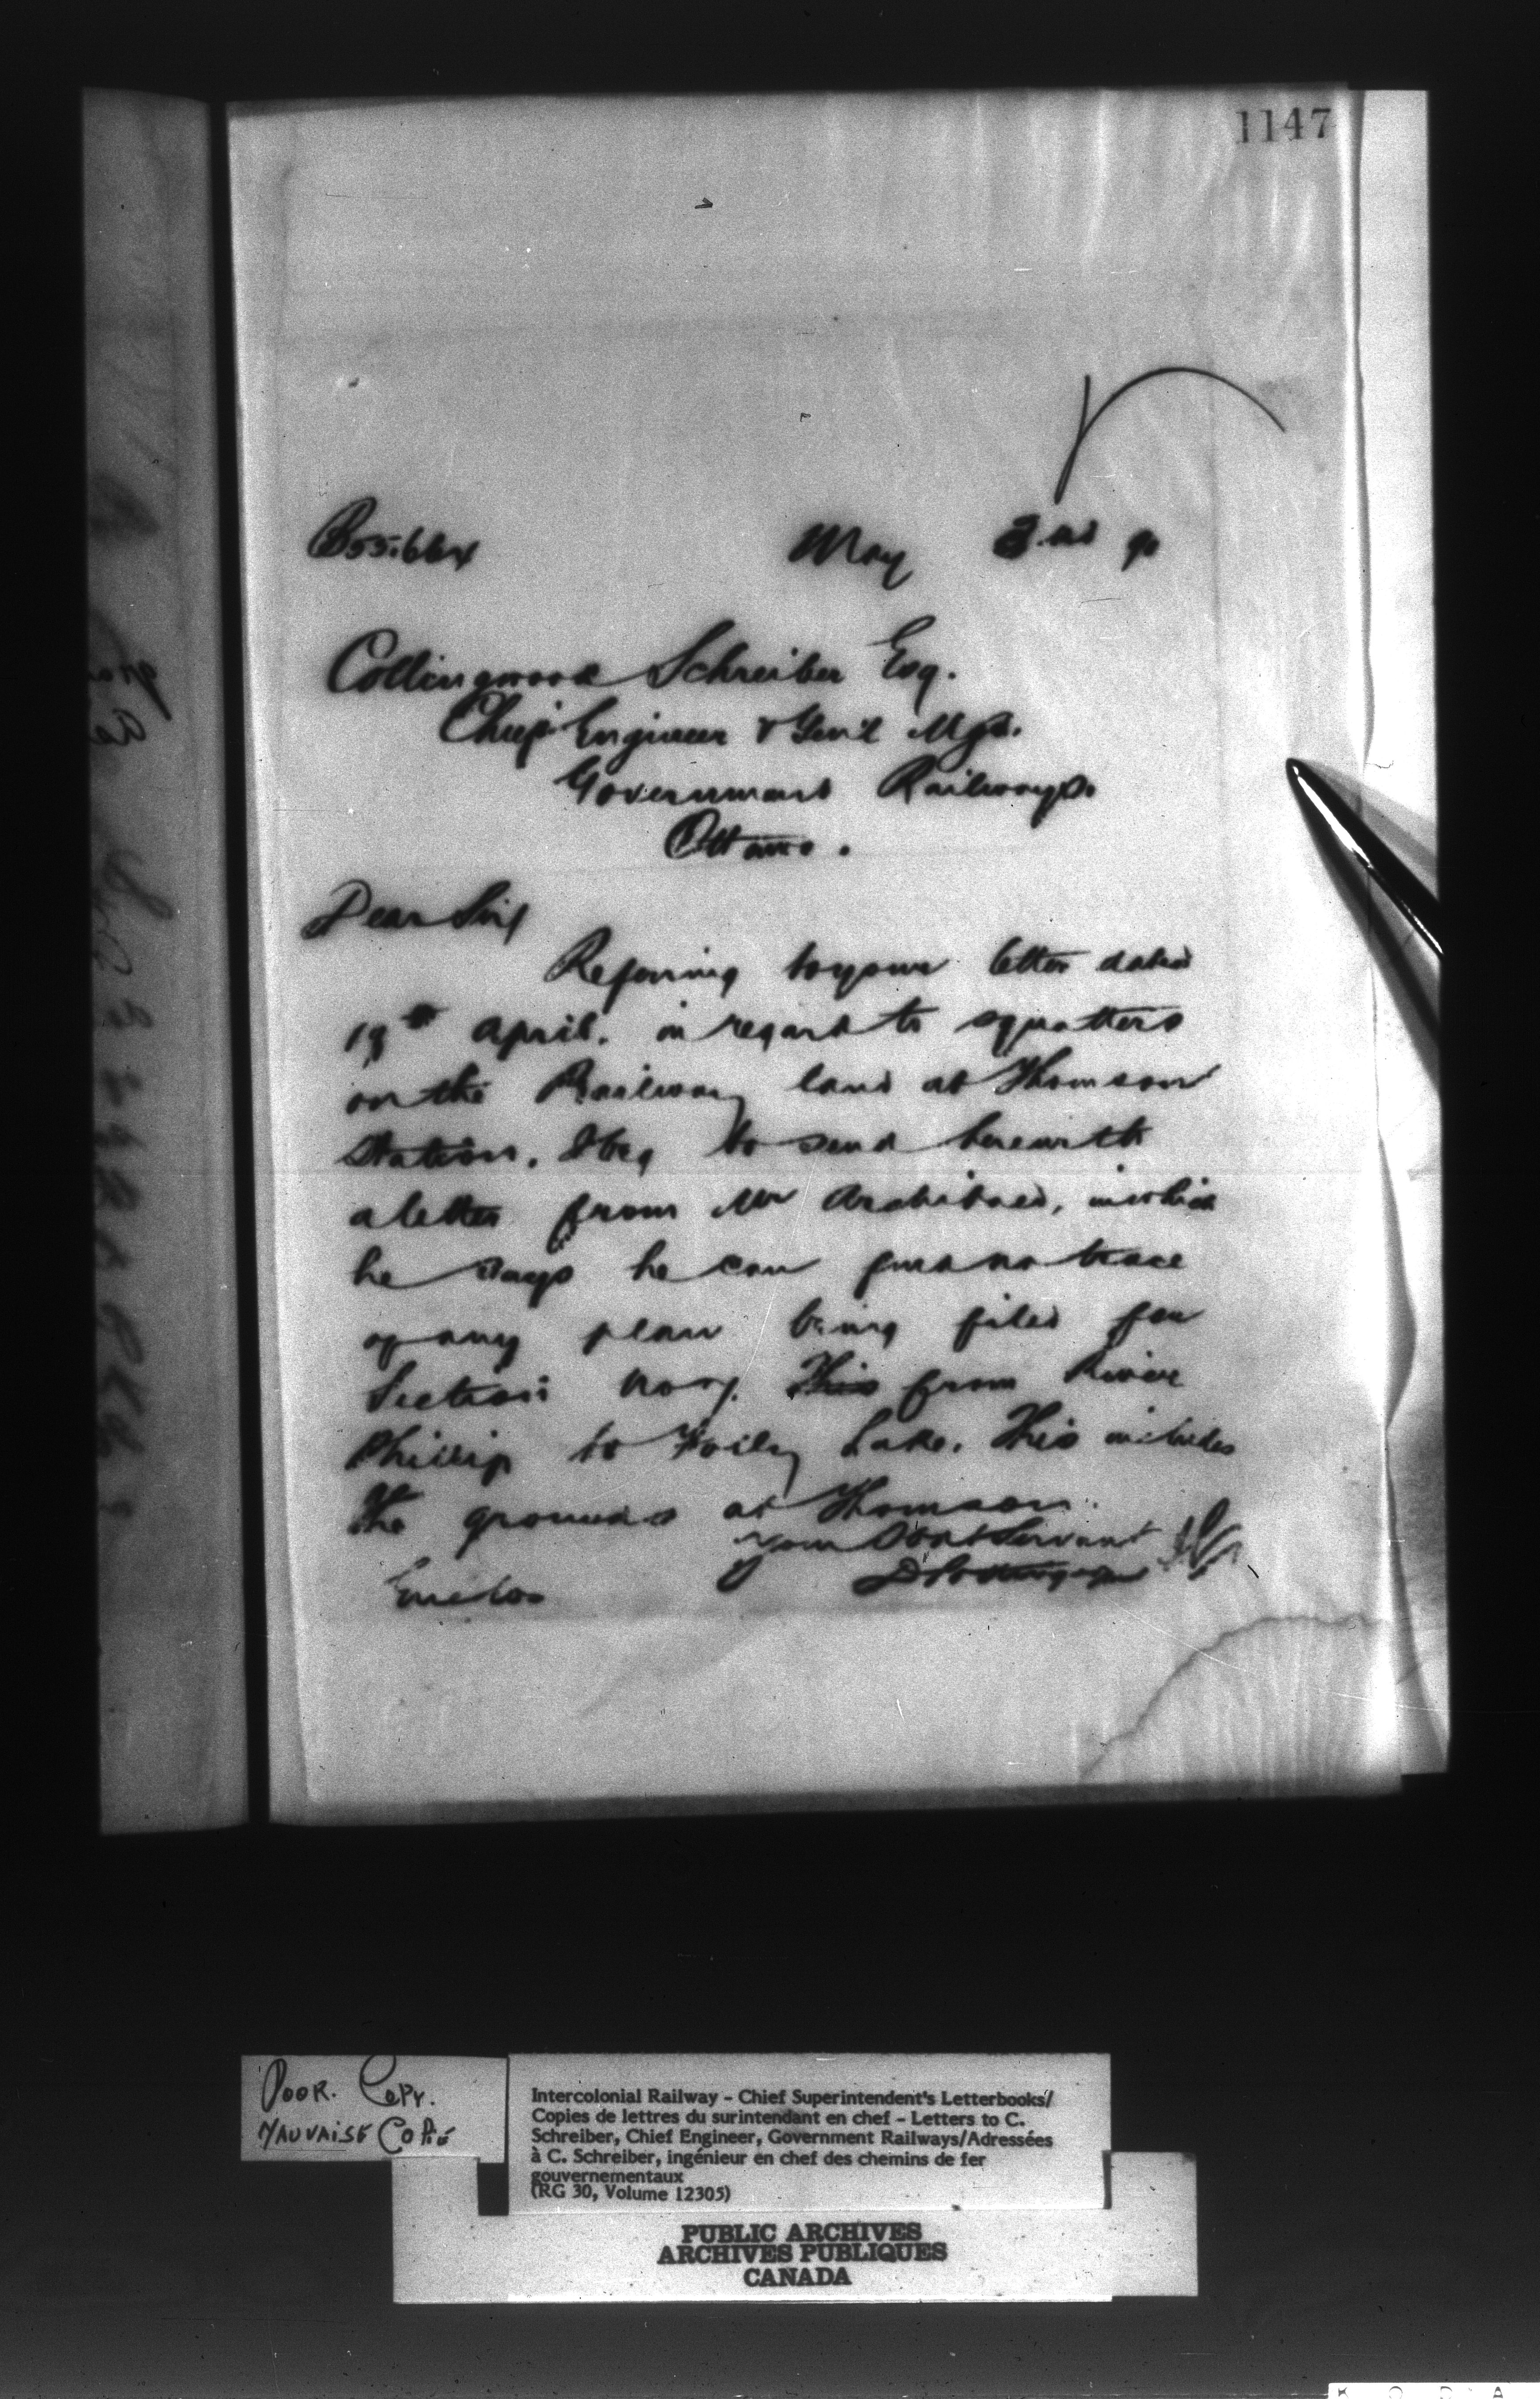 1147
May 2nd 90
Collingwood Schreiber Esq.
Chief Engineer & Gen'l Mgr.
Government Railways.
Ottawa.
Dear Sir
Referring to your letter dated
April. in regard to squatters
on the Railway land at Thomson
Station. I beg to send herewith
a letter from Mr Archibald, in which
he says he can find no trace
of any plan being filed for
Section No 7. This from River
Phillip to Folly Lake. This includes
the grounds at Thomson.
Your Obdt Servant
D Pottinger
Enclos
POOR. COPY.
MAUVAISE COPIE
Intercolonial Railway - Chief Superintendent's Letterbooks/
Copies de lettres du surintendant en chef - Letters to C.
Schreiber, Chief Engineer, Government Railways/Adressées
à C. Schreiber, ingénieur en chef des chemins de fer
gouvernementaux
(RG 30, Volume 12305)
PUBLIC ARCHIVES
ARCHIVES PUBLIQUES
CANADA
K O D A